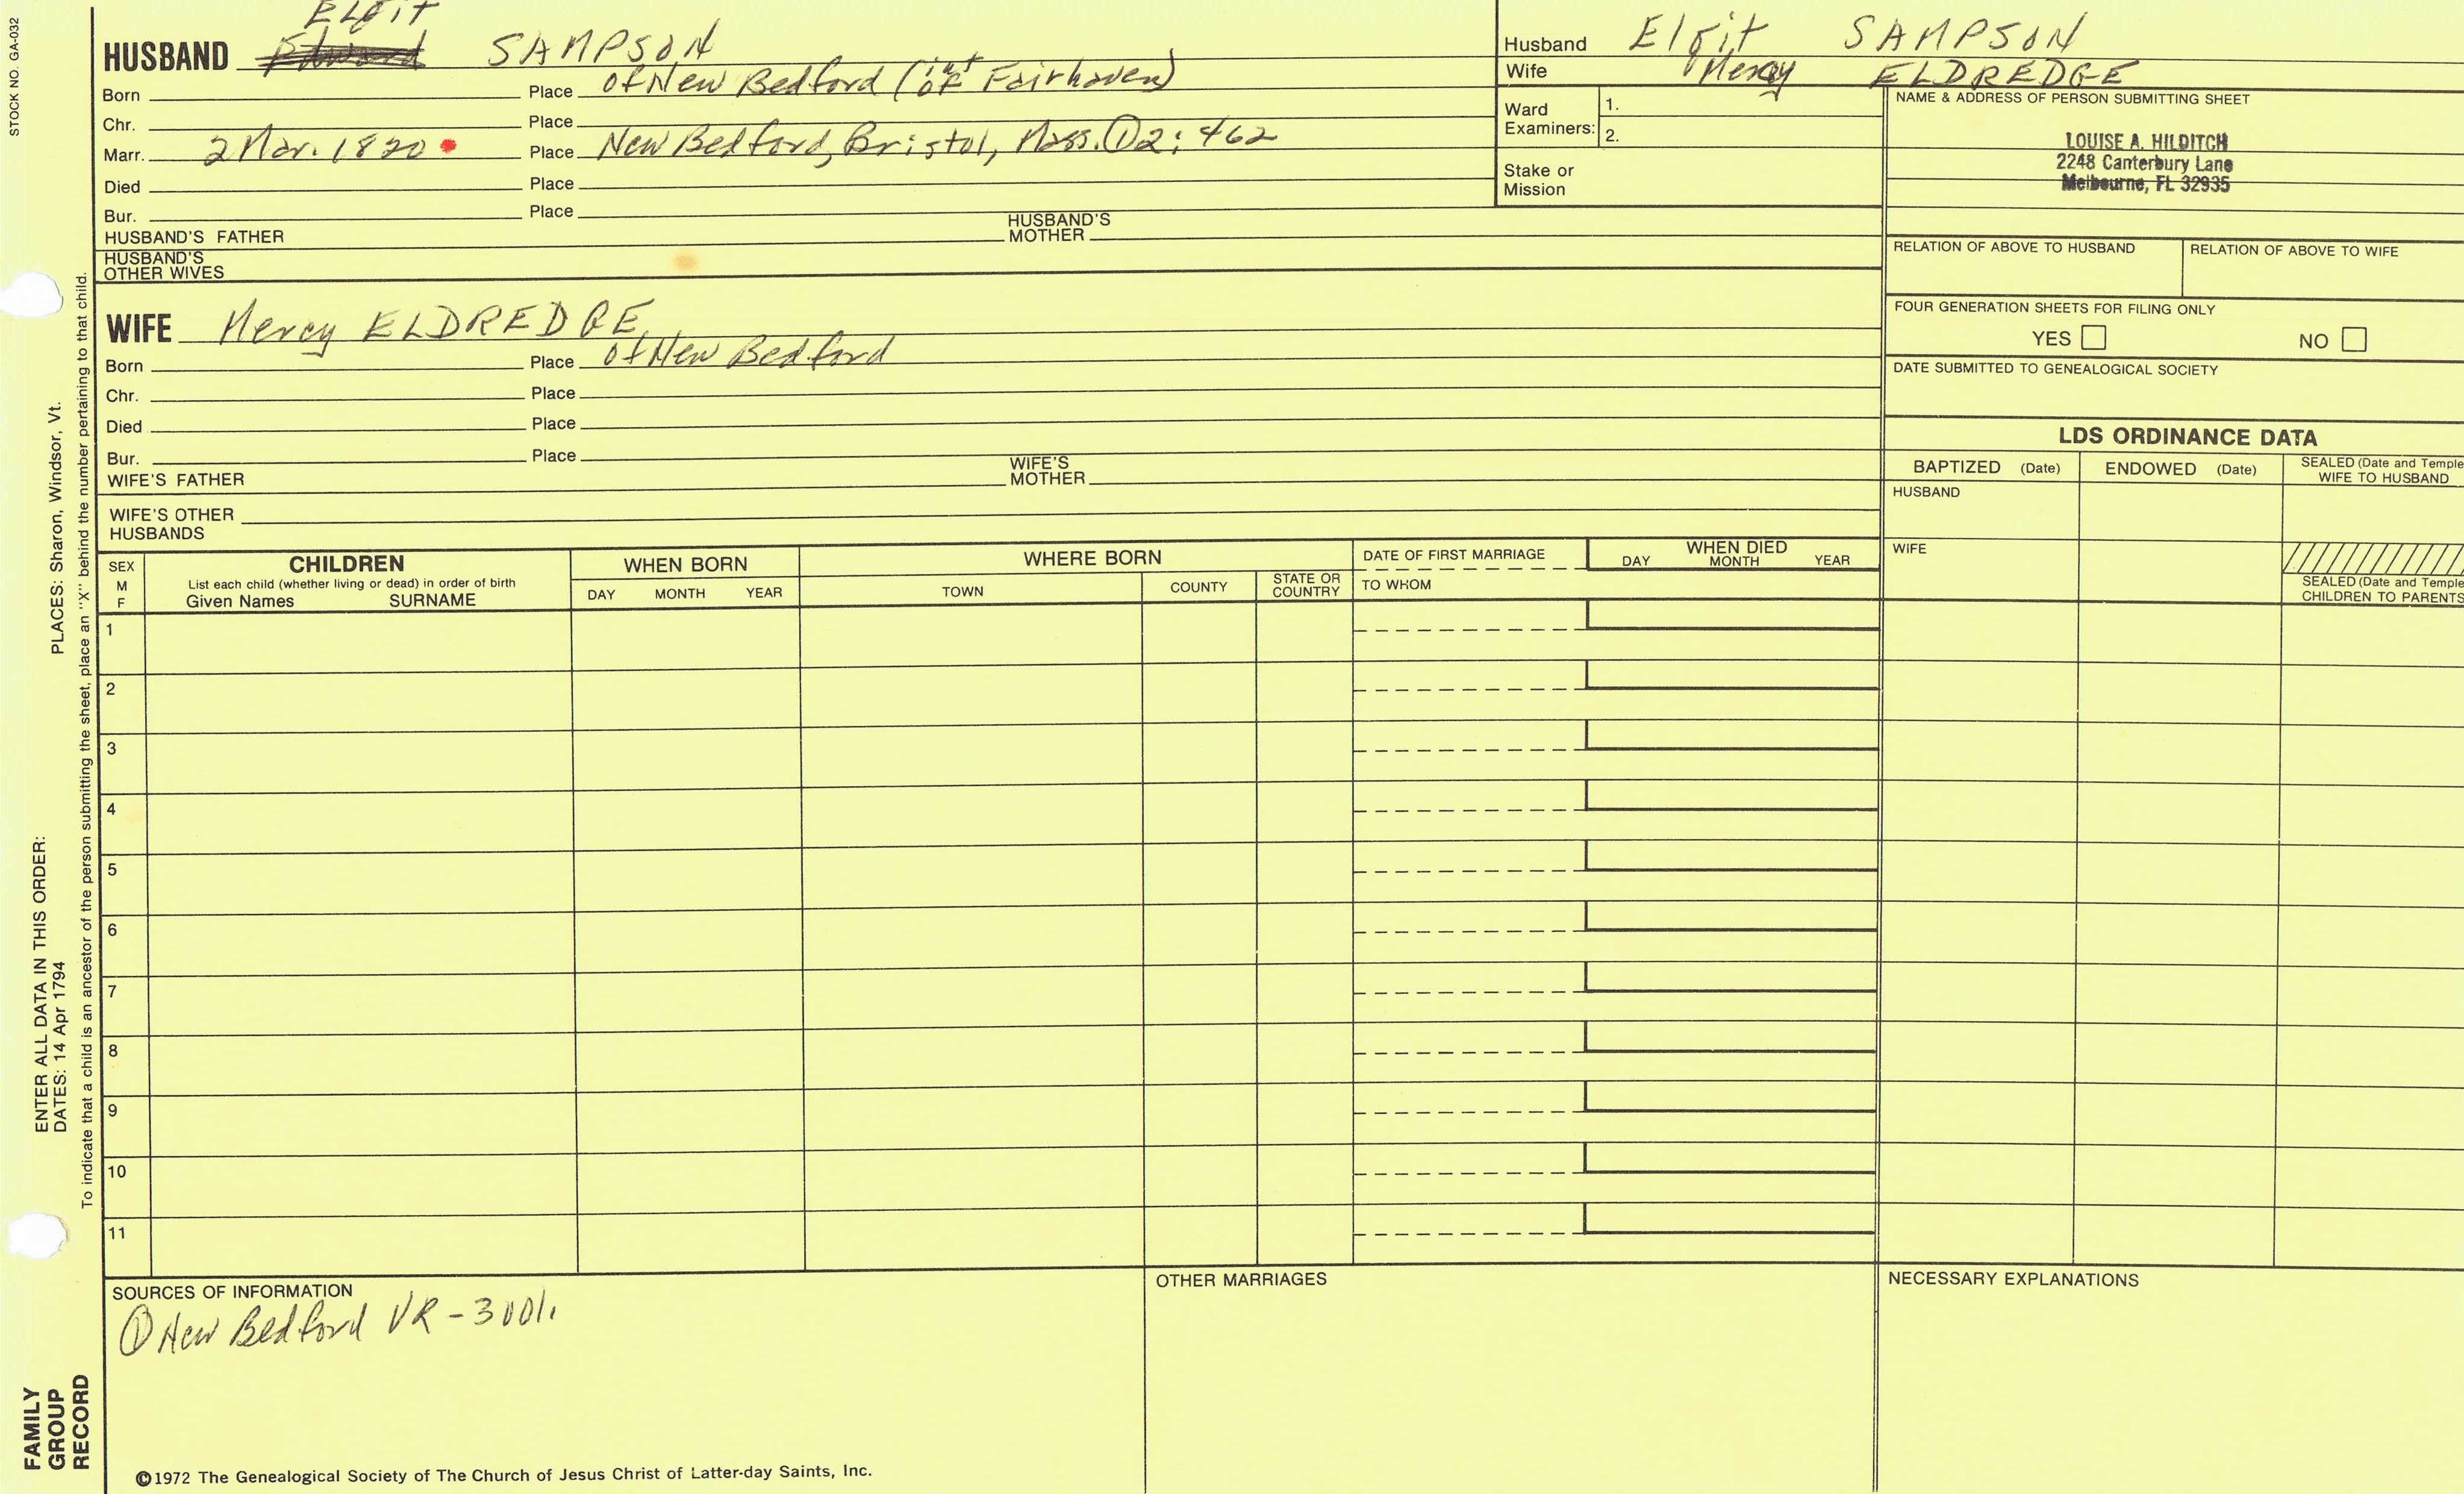 STOCK NO. GA-032
Elfit
HUSBAND Edward SAMPSON
Born Place of New Bedford (int of Fairhaven)
Chr. Place
Marr. 2 Mar. 1820 Place New Bedford, Bristol, Mass. ① 2: 462
Died Place
Bur. Place
HUSBAND'S FATHER HUSBAND'S MOTHER
HUSBAND'S OTHER WIVES
Husband Elfit SAMPSON
Wife Mercy ELDREDGE
Ward Examiners: 1.
2.
Stake or Mission
NAME & ADDRESS OF PERSON SUBMITTING SHEET
LOUISE A. HILDITCH
2248 Canterbury Lane
Melbourne, FL 32935
RELATION OF ABOVE TO HUSBAND RELATION OF ABOVE TO WIFE
FOUR GENERATION SHEETS FOR FILING ONLY
YES NO
DATE SUBMITTED TO GENEALOGICAL SOCIETY
WIFE Mercy ELDREDGE
Born Place of New Bedford
Chr. Place
Died Place
Bur. Place
WIFE'S FATHER WIFE'S MOTHER
WIFE'S OTHER HUSBANDS
LDS ORDINANCE DATA
BAPTIZED (Date) ENDOWED (Date) SEALED (Date and Temple
WIFE TO HUSBAND
HUSBAND
WIFE
SEALED (Date and Temple
CHILDREN TO PARENTS
SEX
M
F
CHILDREN
List each child (whether living or dead) in order of birth
Given Names SURNAME
WHEN BORN
DAY MONTH YEAR
WHERE BORN
TOWN COUNTY STATE OR COUNTRY
DATE OF FIRST MARRIAGE
TO WHOM
WHEN DIED
DAY MONTH YEAR
1
2
3
4
5
6
7
8
9
10
11
SOURCES OF INFORMATION
① New Bedford VR - 3001.
OTHER MARRIAGES
NECESSARY EXPLANATIONS
©1972 The Genealogical Society of The Church of Jesus Christ of Latter-day Saints, Inc.
FAMILY
GROUP
RECORD
ENTER ALL DATA IN THIS ORDER:
DATES: 14 Apr 1794 PLACES: Sharon, Windsor, Vt.
To indicate that a child is an ancestor of the person submitting the sheet, place an "X" behind the number pertaining to that child.